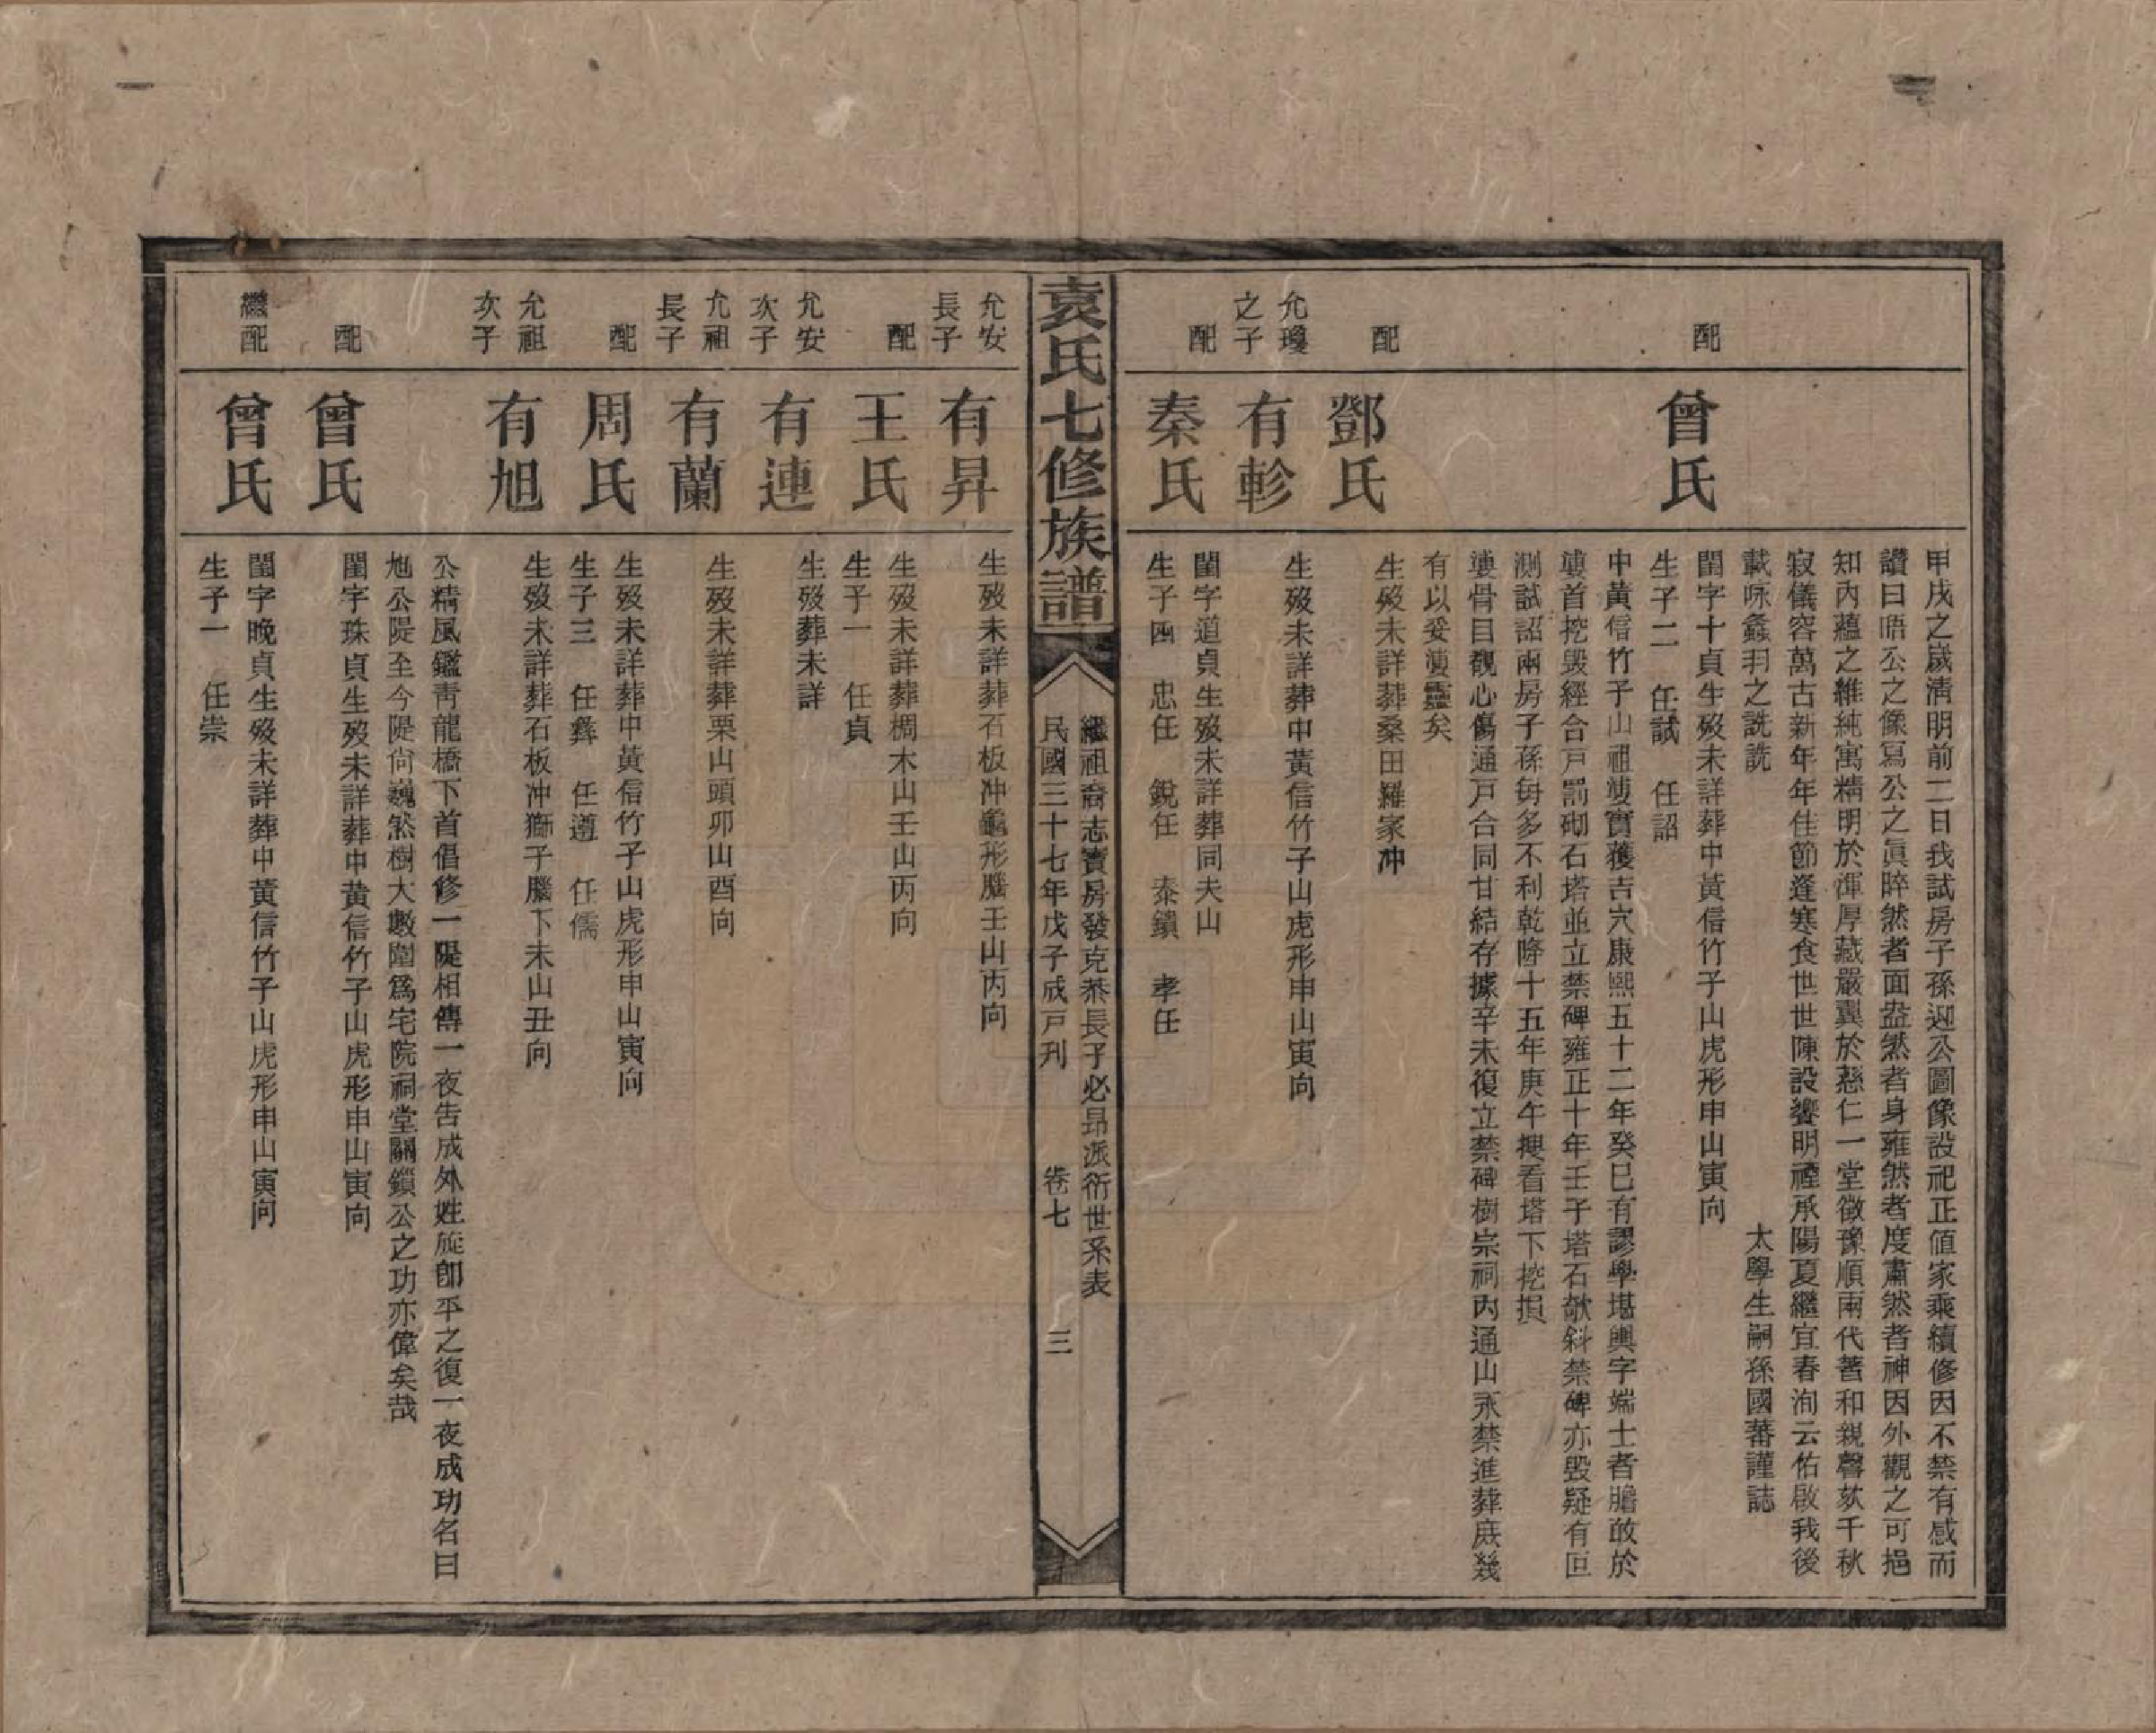 甲戌之歲清明前二日我試房子孫迎公圖像設祀正值家乘續修因不禁有感而
讚曰晤公之像寫公之眞睟然者面盎然者身雍然者度肅然者神因外觀之可挹
知內蘊之維純寓精明於渾厚藏嚴翼於慈仁一堂徵豫順兩代著和親馨荻千秋
寂儀容萬古新年年佳節逢寒食世世陳設饗明禋承陽夏繼宜春洵云佑啟我後
載咏螽羽之詵詵 太學生嗣孫國蕃謹誌
配 曾氏 閨字十貞生歿未詳葬中黃信竹子山虎形申山寅向
生子二 任試 任詔
中黃信竹子山祖塋實獲吉穴康熙五十二年癸巳有謬學堪輿字端士者膽敢於
塋首挖毀經合戶罰砌石塔並立禁碑雍正十年壬子塔石欹斜禁碑亦毀疑有叵
測試詔兩房子孫毎多不利乾隆十五年庚午搜看塔下挖損
塋骨目觀心傷通戶合同甘結存據辛未復立禁碑樹宗祠內通山永禁進葬庶幾
有以妥塋靈矣
配 鄧氏 生歿未詳葬桑田羅家冲
允瓊之子 有軫 生歿未詳葬中黃信竹子山虎形申山寅向
配 秦氏 閨字道貞生歿未詳葬同夫山
生子四 忠任 銳任 泰鎮 孝任
袁氏七修族譜
繼祖裔志寶房發克恭長子必昂派衍世系表
民國三十七年戊子成戸刋 卷七 三
允安長子 有昇 生歿未詳葬石板冲龜形腦壬山丙向
配 王氏 生歿未詳葬椆木山壬山丙向
生子一 任貞
允安次子 有連 生歿葬未詳
允祖長子 有蘭 生歿未詳葬栗山頭卯山酉向
配 周氏 生歿未詳葬中黃信竹子山虎形申山寅向
生子三 任彝 任遵 任儒
允祖次子 有旭 生歿未詳葬石板冲獅子腦下未山丑向
公精風鑑靑龍橋下首倡修一隄相傳一夜告成外姓旋卽平之復一夜成功名曰
旭公隄至今隄尙巍然樹大數圍爲宅院祠堂關鎖公之功亦偉矣哉
配 曾氏 閨字珠貞生歿未詳葬中黃信竹子山虎形申山寅向
繼配 曾氏 閨字晚貞生歿未詳葬中黃信竹子山虎形申山寅向
生子一 任崇